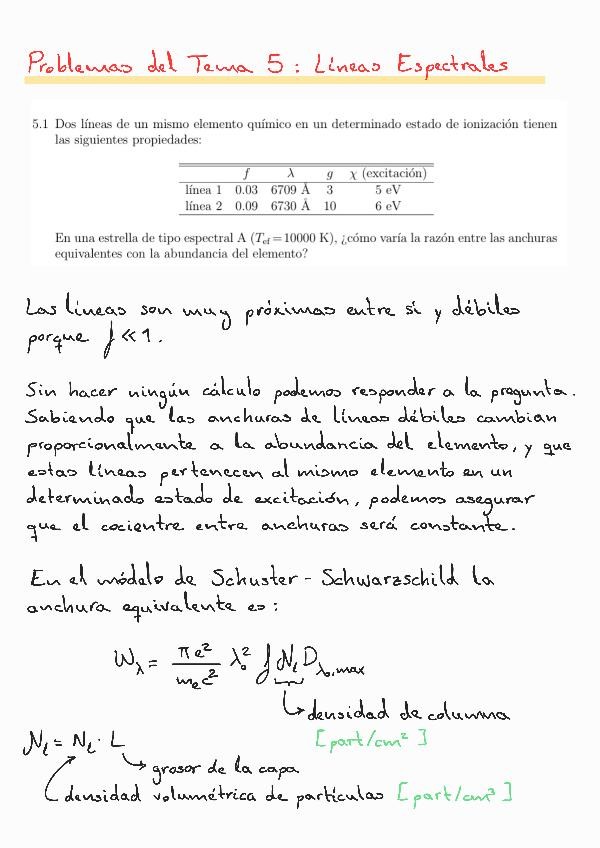 Problemas del Tema 5 : Líneas Espectrales
5.1 Dos líneas de un mismo elemento químico en un determinado estado de ionización tienen
las siguientes propiedades:
f λ g χ (excitación)
línea 1 0.03 6709 Å 3 5 eV
línea 2 0.09 6730 Å 10 6 eV
En una estrella de tipo espectral A (T_ef = 10000 K), ¿cómo varía la razón entre las anchuras
equivalentes con la abundancia del elemento?
Las líneas son muy próximas entre sí y débiles
porque f ≪ 1.
Sin hacer ningún cálculo podemos responder a la pregunta.
Sabiendo que las anchuras de líneas débiles cambian
proporcionalmente a la abundancia del elemento, y que
estas líneas pertenecen al mismo elemento en un
determinado estado de excitación, podemos asegurar
que el cocientre entre anchuras será constante.
En el módelo de Schuster - Schwarzschild la
anchura equivalente es:
W_λ = πe²/m_e c² λ₀² f 𝒩_l D_λ₀,max
densidad de columna
[part/cm²]
𝒩_l = N_l · L
grosor de la capa
densidad volumétrica de partículas [part/cm³]